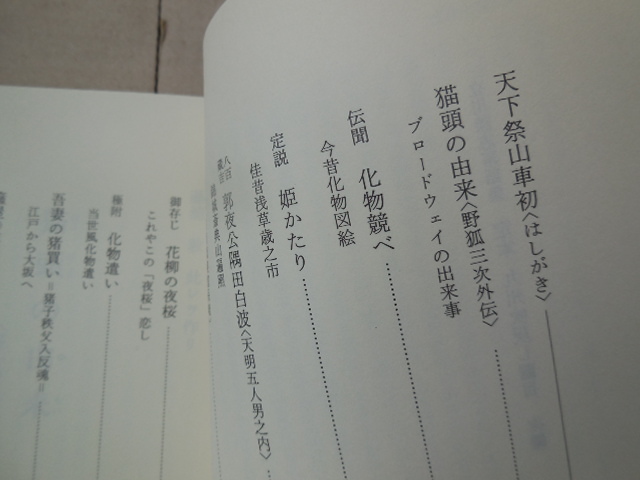 天下祭山車初〈はしがき〉
猫頭の由来〈野狐三次外伝〉
ブロードウェイの出来事
伝聞 化物競べ
今昔化物図絵
定説 姫かたり
佳昔浅草歳之市
郭夜公隅田白波〈天明五人男之内〉
御存じ 花柳の夜桜
これやこの「夜桜」恋し
極附 化物遣い
当世風化物遣い
吾妻の猪買い＝猪子秩父入反魂＝
江戸から大坂へ